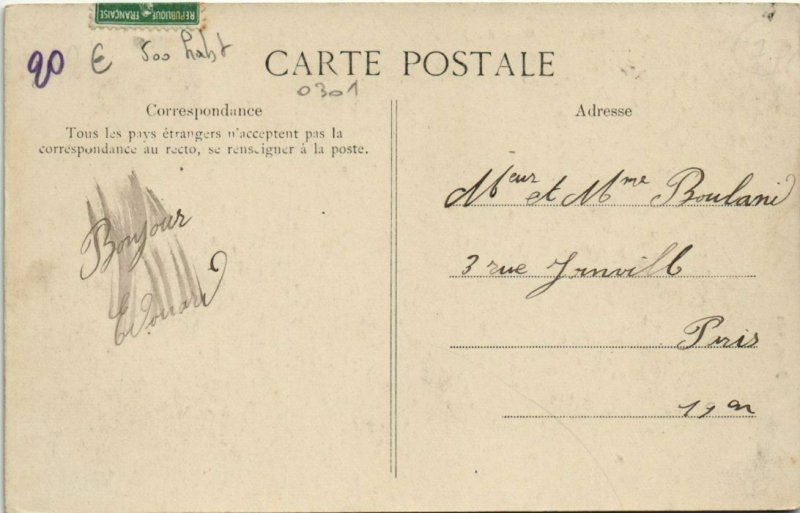 REPUBLIQUE FRANÇAISE
90 € 500 habt
CARTE POSTALE
0301
Correspondance
Tous les pays étrangers n'acceptent pas la
correspondance au recto, se renseigner à la poste.
Bonjour
Edouard
Adresse
Meur et Mme Boulard
3 rue
Paris
19em